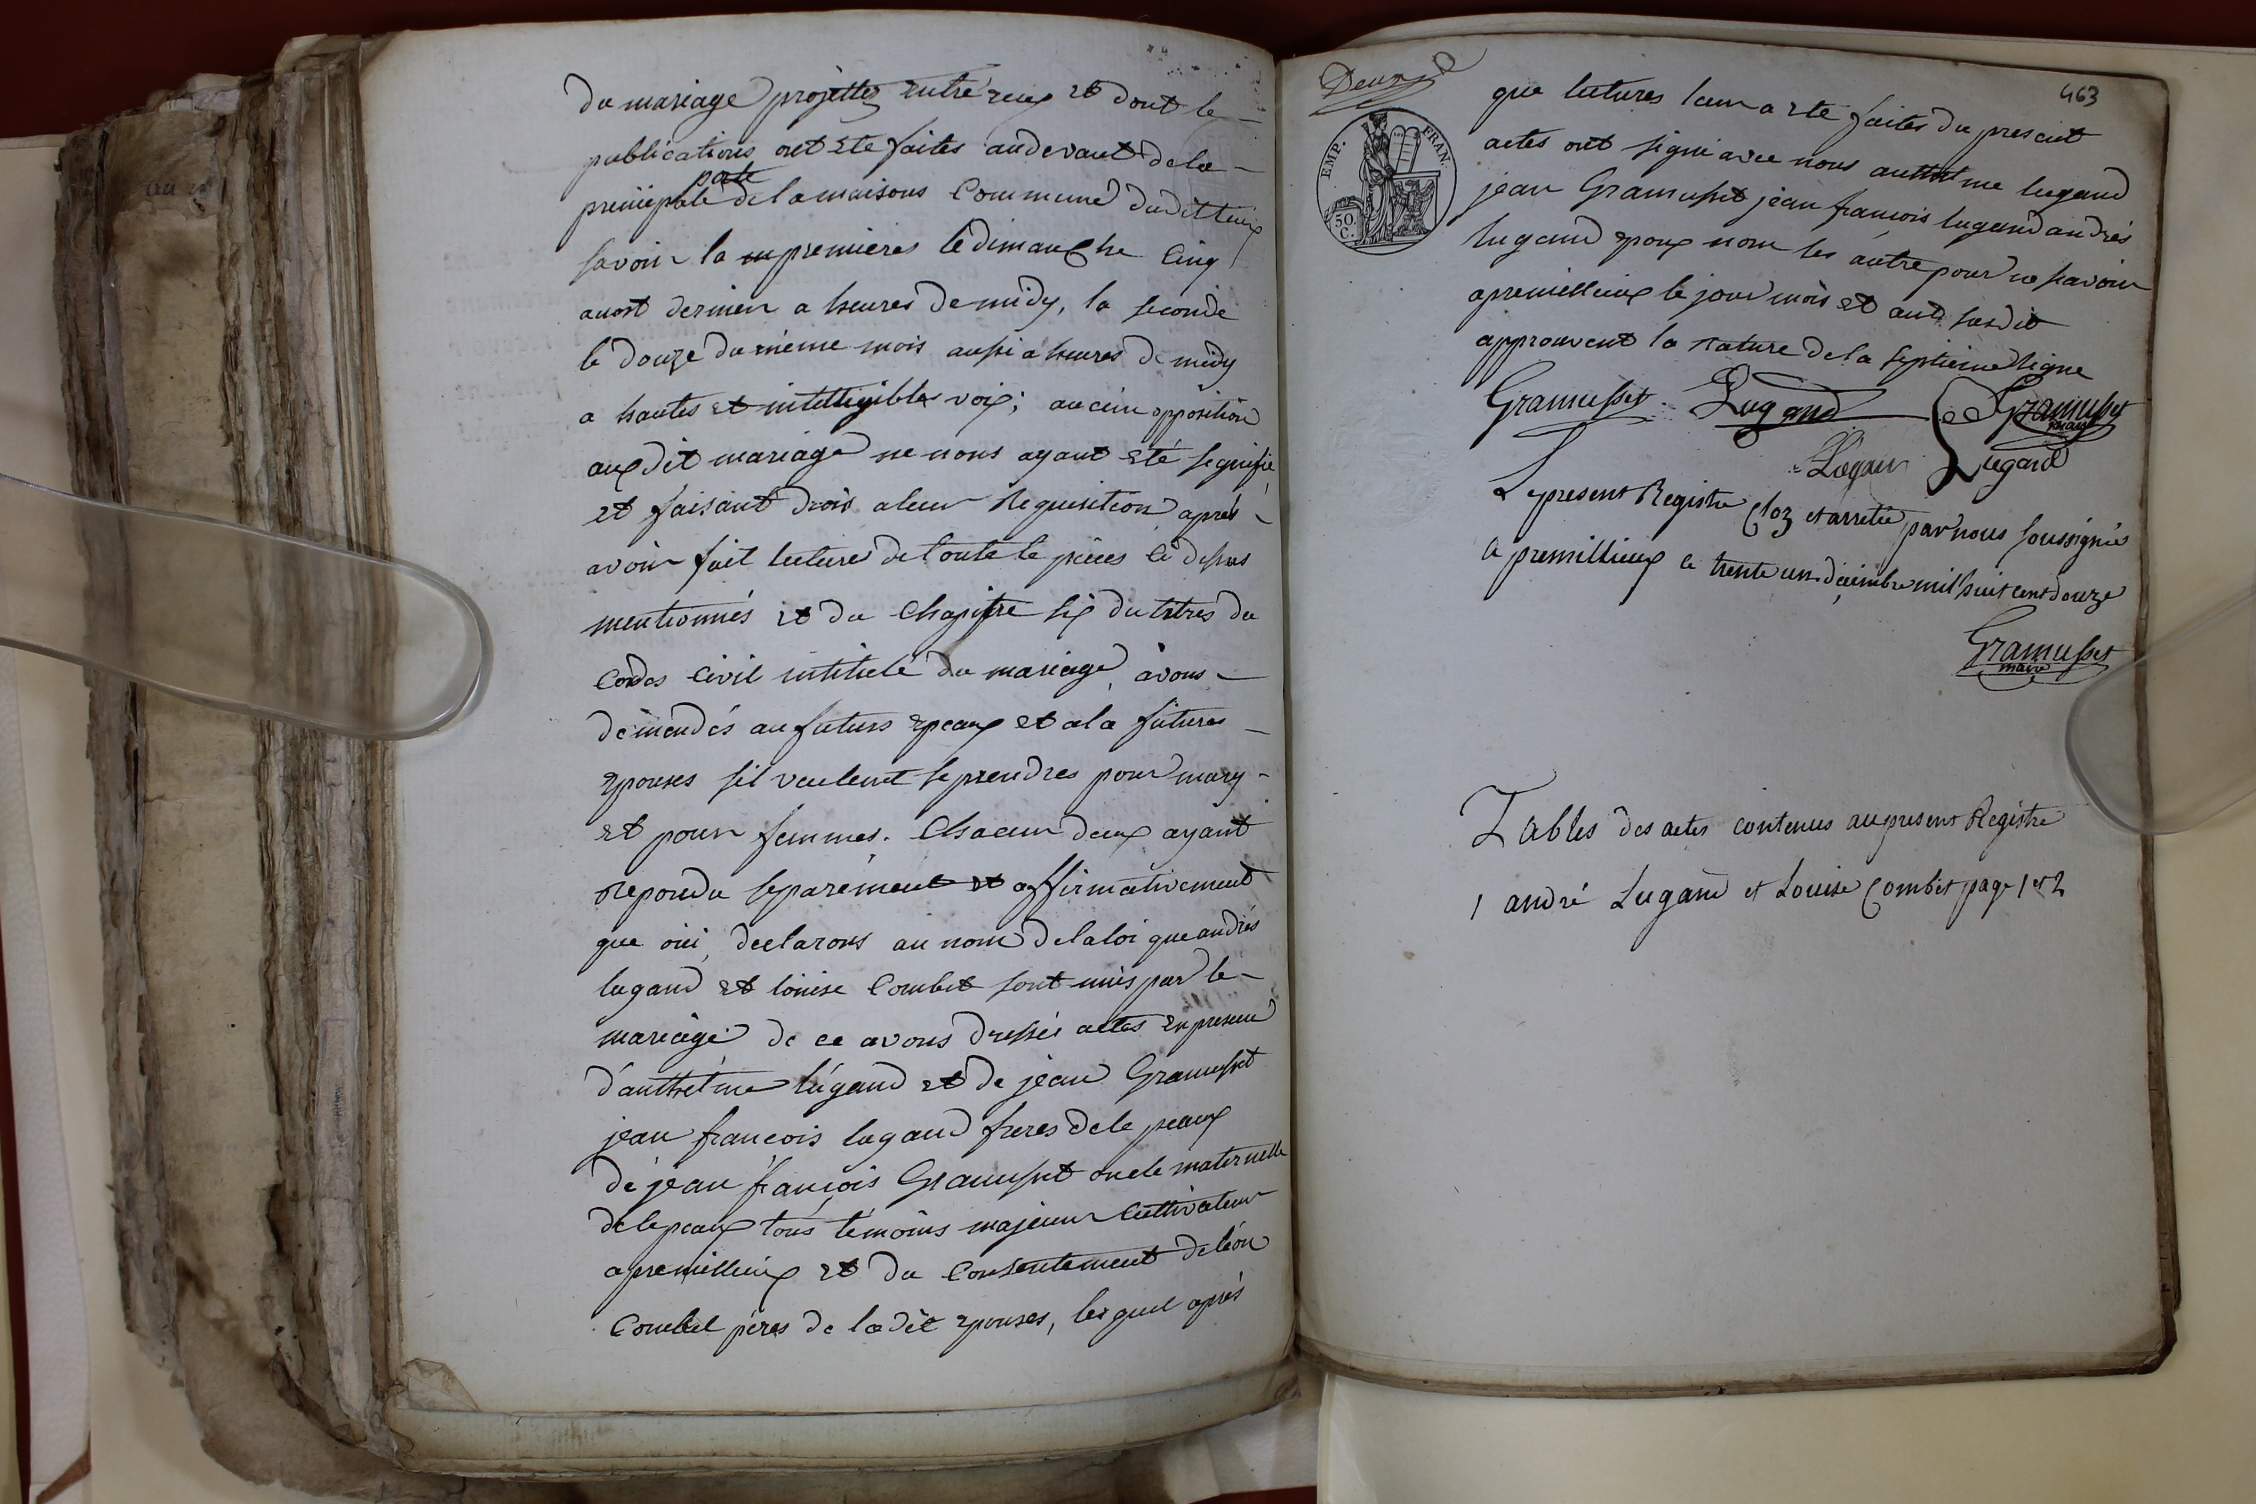 du mariage projettez entre eux et dont le
publications ont ete faites audevant de la
porte
principale de la maisons Commune dudit lieux
savoir la premieres le dimanche Cinq
auost dernier a heures de midy, la seconde
le douze du même mois aussi a heures de midy
a hautes et intelligibles voix; aucun opposition
aux dit mariage ne nous ayant eté signifie
et faisant droit a leur Requisition aprés
avoir fait lecture de toute le pieces ci dessus
mentionnés et du Chapitre six du titres du
Codes Civil intitulé du mariage, avons
demendés au futurs epeaux et a la futures
epouses sil veulent se prendres pour mary
et pour femmes. Chacun deux ayant
repondu separément et affirmativement
que oui, declarons au nom de la loi que andrés
lugand et loüise Combet sont unis par le
mariage de ce avons dressés actes en presence
d'anthelme lugand et de jean Gramusset
jean francois lugand freres de le peaux
de jean francois Gramusset oncle maternelle
de le peaux tous temoins majeur Cultivateur
a premillieux et du Consentement de léon
Combet péres de la dit epouses, les quel aprés
Deuxe
463
EMP. FRAN.
50 C.
que lectures leur a ete faites du present
actes ont signé avec nous anthelme lugand
jean Gramusset jean francois lugand andrés
lugand epoux non les autre pour ne savoir
a premillieux le jour mois et and susdit
approuvent la rature de la septieme ligne
Gramusset Lugand Gramusset
maire
Lugand
Le present Registre Cloz et arretée par nous soussigné
a premillieux le trente un décembre mil huit cent douze
Gramusset
maire
Tables des actes contenus au present Registre
1 andré Lugand et Louise Combet page 1 et 2